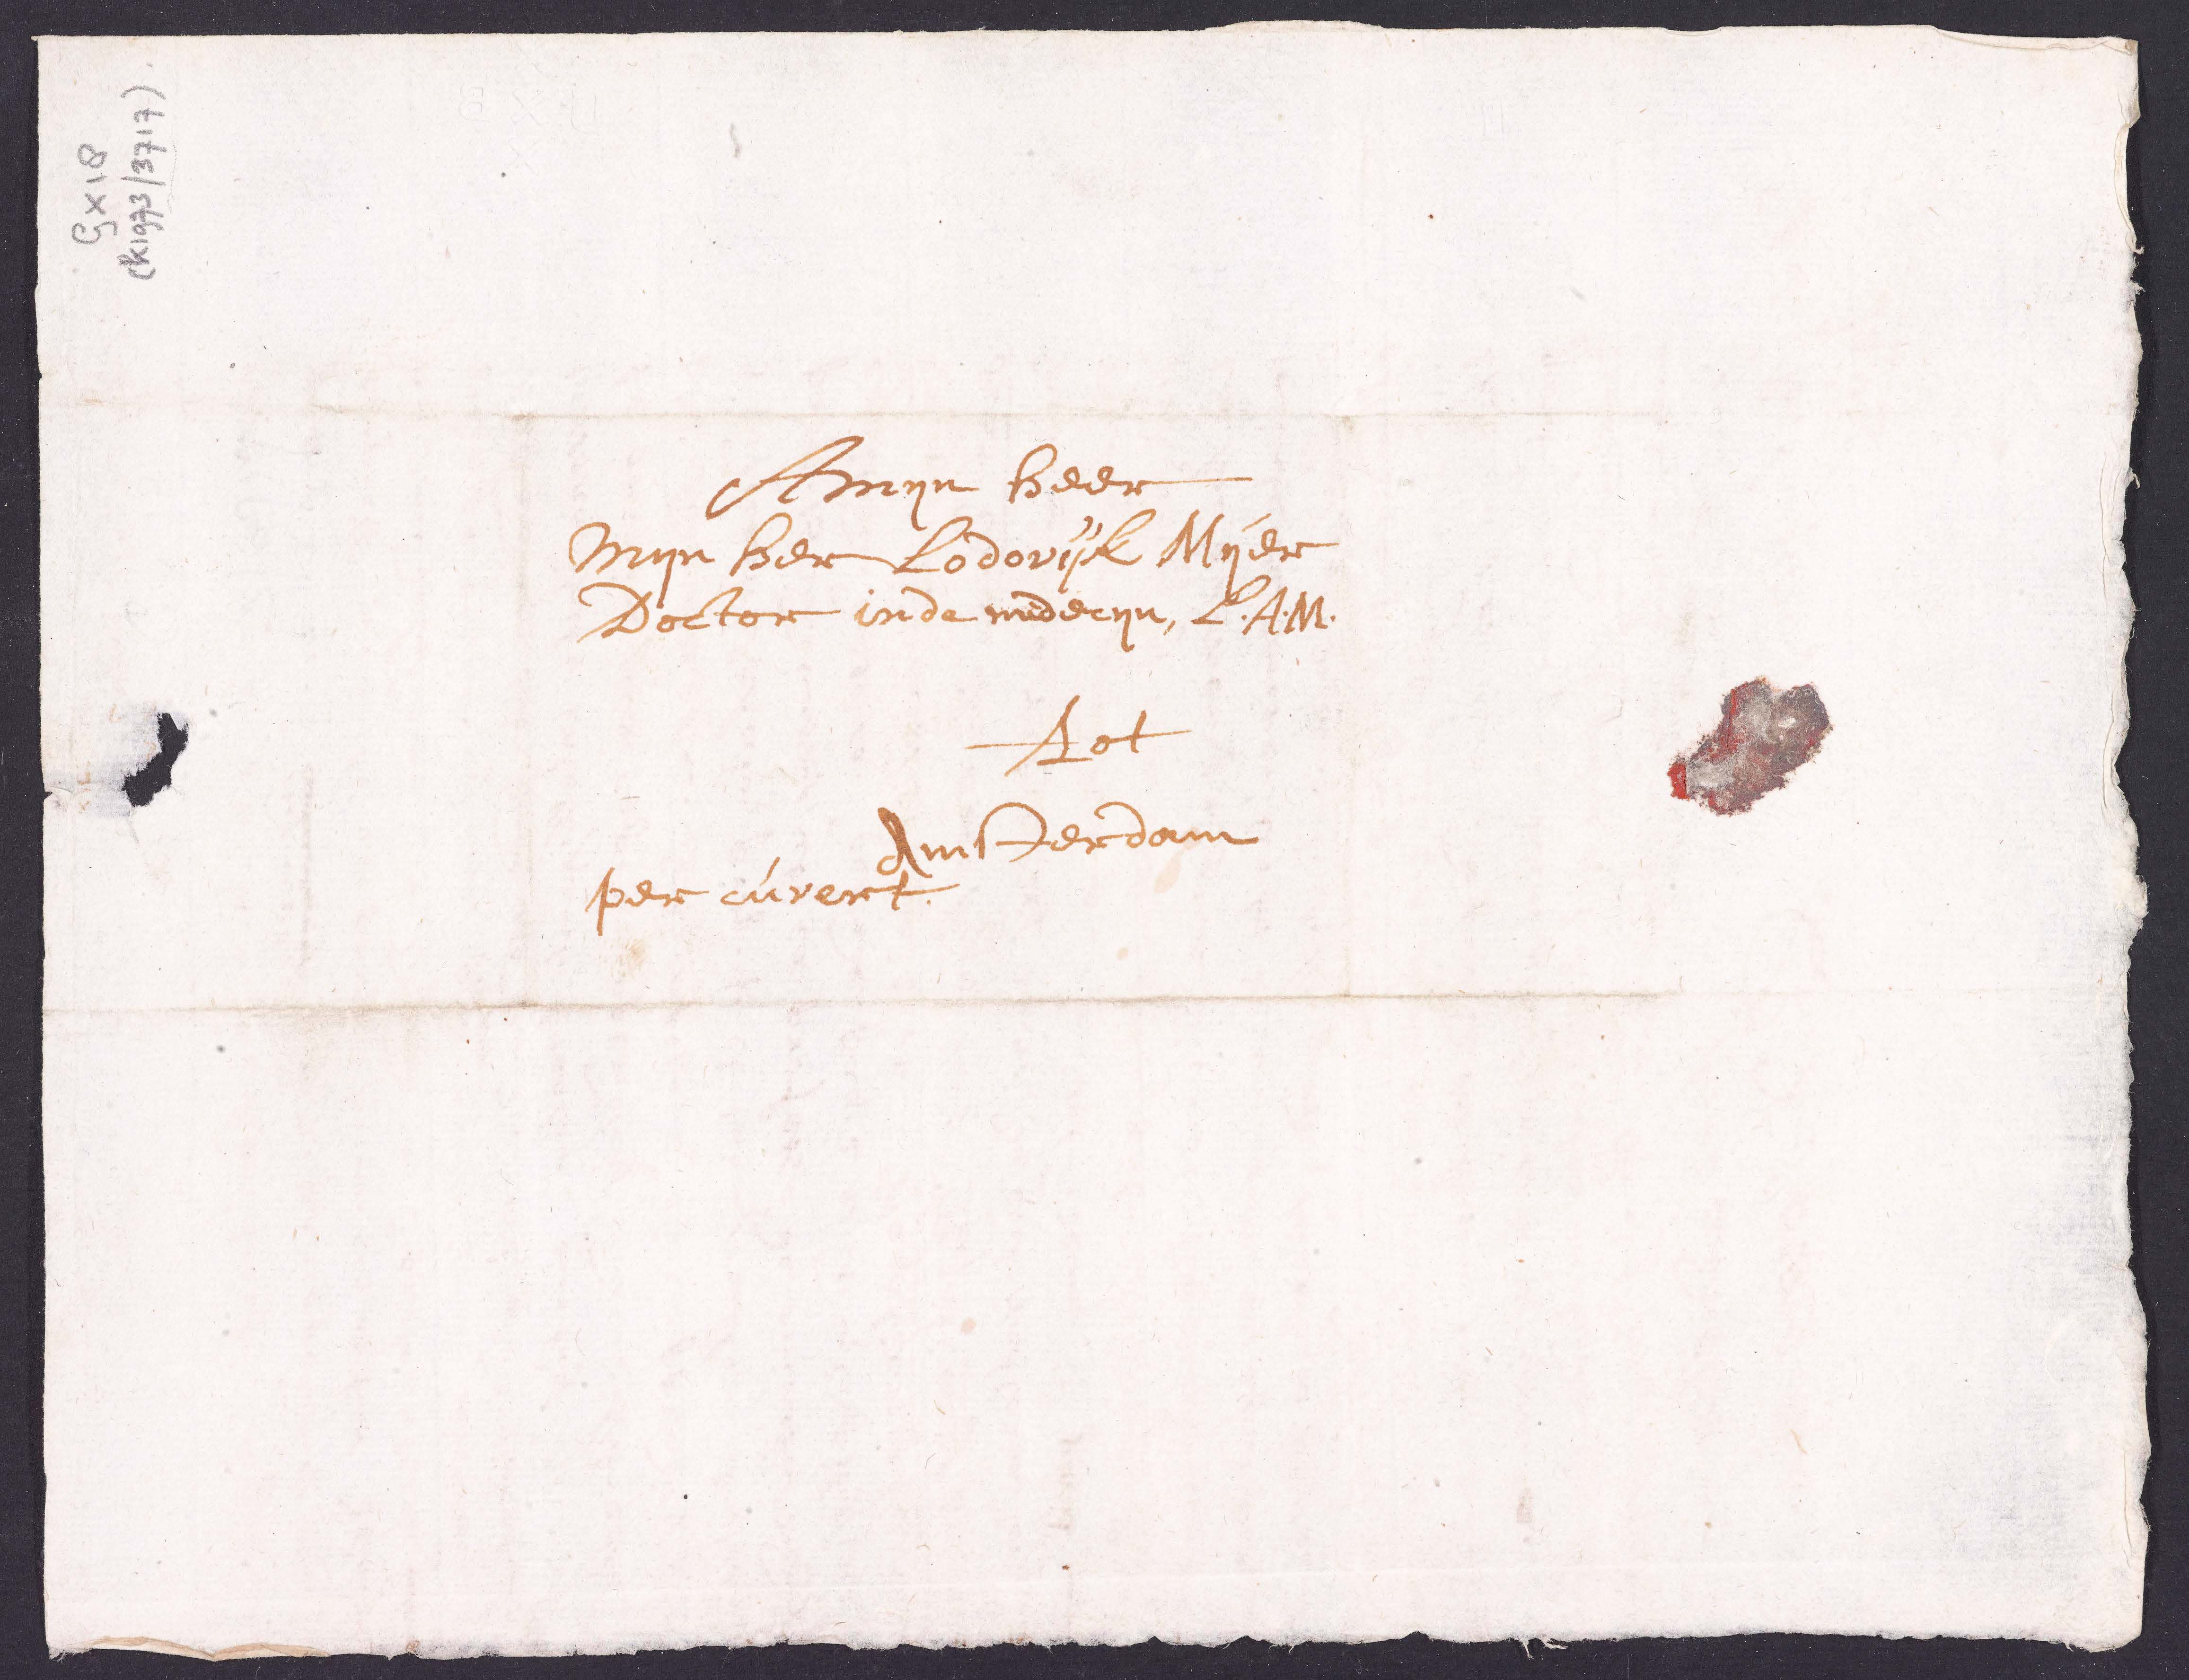 G X 18
(K1973/3717).
A myn heer
Myn heer Lodowijk Mijer
Doctor inde medecyn, L.A.M.
Tot
Amsterdam
per cúvert.